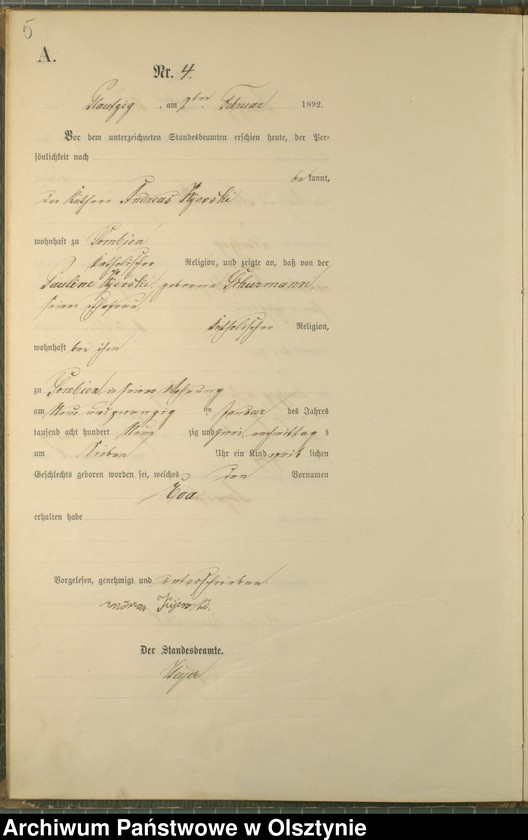 5
A.
Nr. 4.
am Februar 1892.
Vor dem unterzeichneten Standesbeamten erschien heute, der Per-
sönlichkeit nach
bekannt,
der Käthner Andreas
wohnhaft zu
katholischer Religion, und zeigte an, daß von der
Pauline geborene Schurmann,
seiner Ehefrau
katholischer Religion,
wohnhaft bei ihm
zu in seiner Wohnung
am Neun und zwanzig ten Januar des Jahres
tausend acht hundert Neun zig und zwei nachmittag s
um sieben Uhr ein Kind weib lichen
Geschlechts geboren worden sei, welches den Vornamen
Eva
erhalten habe
Vorgelesen, genehmigt und unterschrieben
Der Standesbeamte.
Archiwum Państwowe w Olsztynie